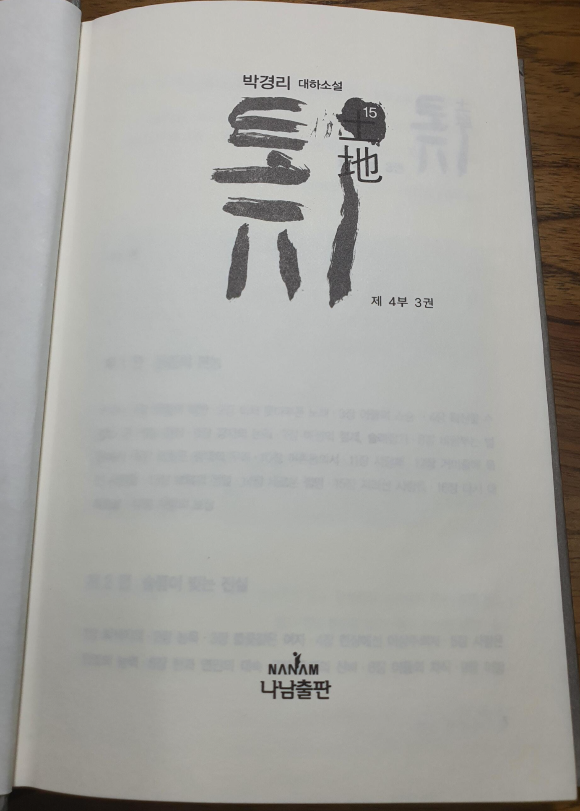 박경리 대하소설
토지
15
土地
제 4부 3권
NANAM
나남출판